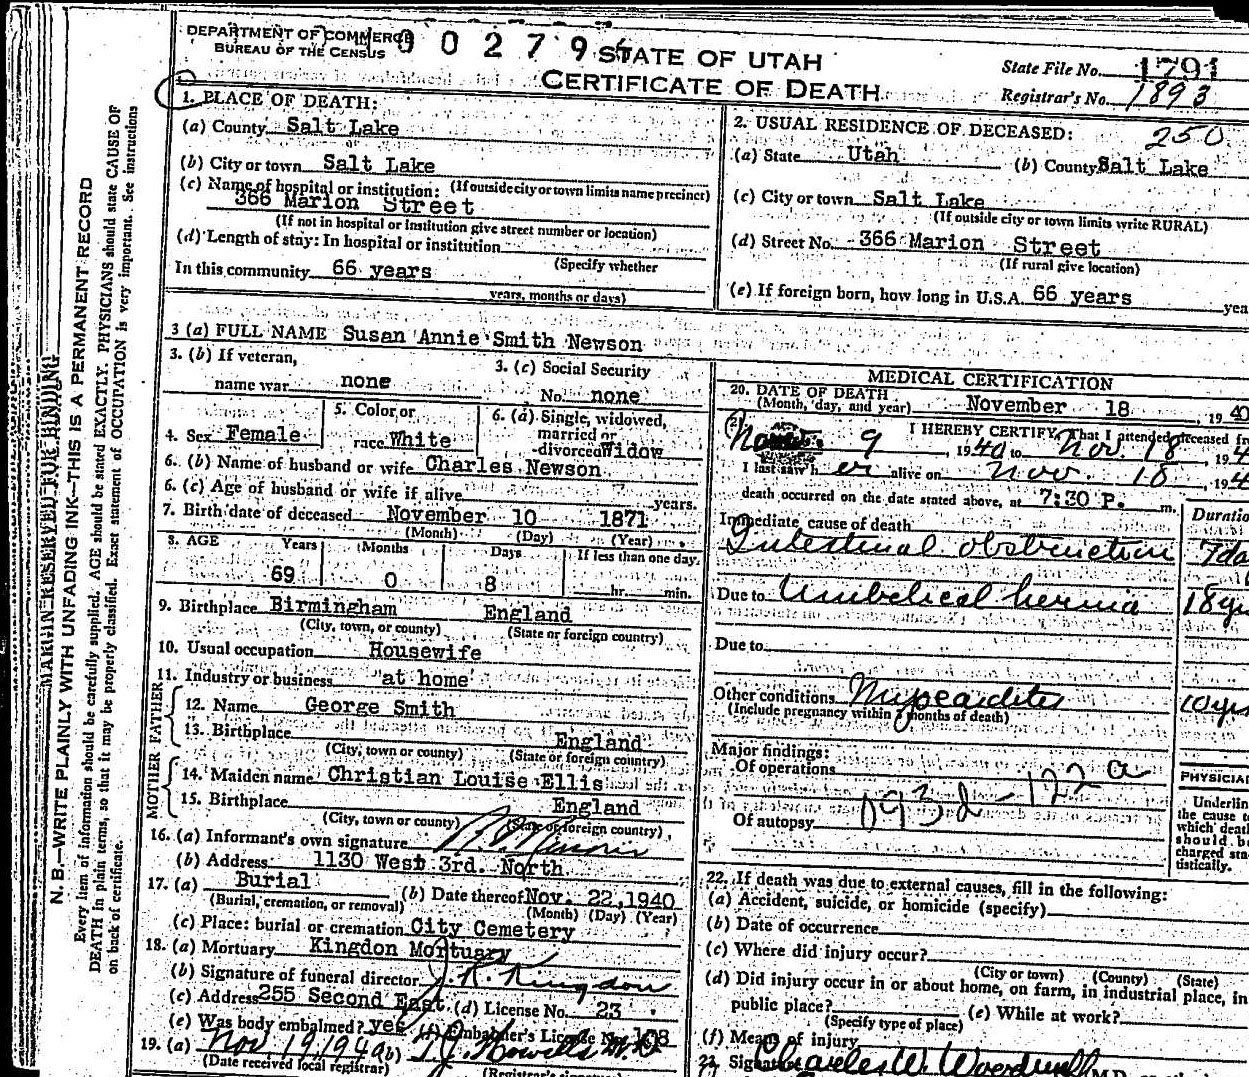 DEPARTMENT OF COMMERCE
BUREAU OF THE CENSUS
0 0 2 7 9
STATE OF UTAH
CERTIFICATE OF DEATH
State File No. 1791
Registrar's No. 1893
1. PLACE OF DEATH:
(a) County Salt Lake
(b) City or town Salt Lake
(If outside city or town limits name precinct)
(c) Name of hospital or institution:
366 Marion Street
(If not in hospital or institution give street number or location)
(d) Length of stay: In hospital or institution
(Specify whether
In this community 66 years
years, months or days)
2. USUAL RESIDENCE OF DECEASED: 250
(a) State Utah (b) County Salt Lake
(c) City or town Salt Lake
(If outside city or town limits write RURAL)
(d) Street No. 366 Marion Street
(If rural give location)
(e) If foreign born, how long in U.S.A. 66 years yea
3 (a) FULL NAME Susan Annie Smith Newson
3. (b) If veteran,
name war none
3. (c) Social Security
No. none
4. Sex Female
5. Color or
race White
6. (a) Single, widowed,
married or
divorced Widow
6. (b) Name of husband or wife Charles Newson
6. (c) Age of husband or wife if alive years.
7. Birth date of deceased November 10 1871
(Month) (Day) (Year)
8. AGE Years Months Days If less than one day
69 0 8 hr. min.
9. Birthplace Birmingham England
(City, town, or county) (State or foreign country)
10. Usual occupation Housewife
11. Industry or business at home
FATHER
12. Name George Smith
13. Birthplace England
(City, town or county) (State or foreign country)
MOTHER
14. Maiden name Christian Louise Ellis
15. Birthplace England
(City, town or county) (State or foreign country)
16. (a) Informant's own signature
(b) Address 1130 West 3rd. North
17. (a) Burial (b) Date thereof Nov. 22, 1940
(Burial, cremation, or removal) (Month) (Day) (Year)
(c) Place: burial or cremation City Cemetery
18. (a) Mortuary Kingdon Mortuary
(b) Signature of funeral director J. R. Kingdon
(c) Address 255 Second East (d) License No. 23
(e) Was body embalmed? yes (f) Embalmer's License No. 108
19. (a) Nov 19, 1940 (b) T. J. Howells M.D.
(Date received local registrar) (Registrar's
MEDICAL CERTIFICATION
20. DATE OF DEATH
(Month, day, and year) November 18, 1940
(21) I HEREBY CERTIFY, That I attended deceased from
9, 1940 to Nov. 18, 194
I last saw her alive on Nov. 18, 194
death occurred on the date stated above, at 7:30 P. m.
Duratio
Immediate cause of death
Intestinal obstruction 7 da
Due to Umbelical hernia 18 yr
Due to
Other conditions Myocarditis 10 yrs
(Include pregnancy within months of death)
Major findings:
Of operations
Of autopsy
193d - 122a
PHYSICIAN
Underlin
the cause to
which death
should be
charged sta
tistically.
22. If death was due to external causes, fill in the following:
(a) Accident, suicide, or homicide (specify)
(b) Date of occurrence
(c) Where did injury occur?
(City or town) (County) (State)
(d) Did injury occur in or about home, on farm, in industrial place, in
public place? (e) While at work?
(Specify type of place)
(f) Means of injury
23. Signature Charles W. Woodruff M.D.
MARGIN RESERVED FOR BINDING
N. B.—WRITE PLAINLY WITH UNFADING INK—THIS IS A PERMANENT RECORD
Every item of information should be carefully supplied. AGE should be stated EXACTLY. PHYSICIANS should state CAUSE OF
DEATH in plain terms, so that it may be properly classified. Exact statement of OCCUPATION is very important. See instructions
on back of certificate.